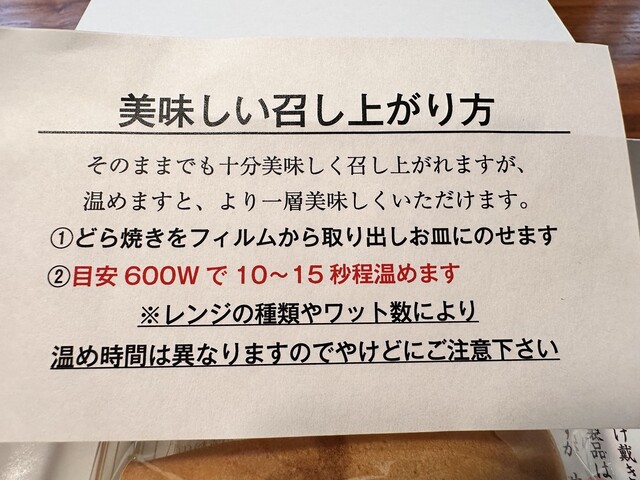 美味しい召し上がり方
そのままでも十分美味しく召し上がれますが、
温めますと、より一層美味しくいただけます。
①どら焼きをフィルムから取り出しお皿にのせます
②目安600Wで10〜15秒程温めます
※レンジの種類やワット数により
温め時間は異なりますのでやけどにご注意下さい
け戴き
製品は